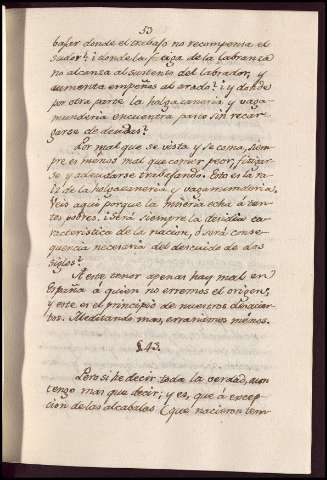 53
bajar donde el trabajo no recompensa el
sudor? ¿i donde la fatiga de la labranza
no alcanza al sustento del labrador, y
aumenta empeños al arado? ¿i y donde
por otra parte la holgazanaria y vaga-
munderia encuentra panco sin recar-
garse de deudas?
Por mal que se vista y se coma, siem-
pre es menos mal que comer peor, fatigar-
se y adeudarse trabajando. Esta es la ra-
iz de la holgazaneria y vagamunderia,
Veis aqui porque la miseria echa á tan-
tos pobres. ¿Será siempre la desidia ca-
racteristica de la nacion, ó será conse-
quencia necesaria del descuido de dos
siglos?
A este tenor apenas hay mal en
España á quien no erremos el origen,
y este es el principio de nuestros desacier-
tos. Meditando mas, erraremos ménos.
§. 43.
Pero si he decir toda la verdad, aun
tengo mas que decir; y es, que á excep-
cion de las alcabalas (que nacieron tem-